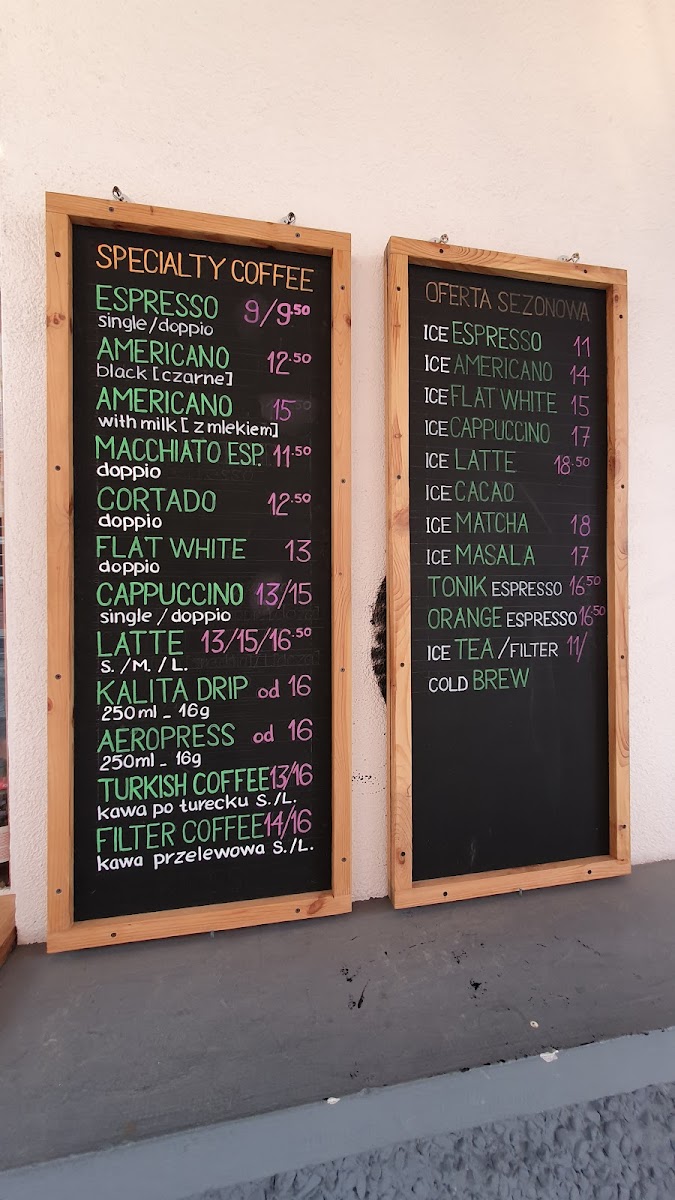 SPECIALTY COFFEE
ESPRESSO 9/9.50
single/doppio
AMERICANO 12.50
black [czarne]
AMERICANO 15
with milk [z mlekiem]
MACCHIATO ESP. 11.50
doppio
CORTADO 12.50
doppio
FLAT WHITE 13
doppio
CAPPUCCINO 13/15
single/doppio
LATTE 13/15/16.50
S./M./L.
KALITA DRIP od 16
250ml - 16g
AEROPRESS od 16
250ml - 16g
TURKISH COFFEE 13/16
kawa po turecku S./L.
FILTER COFFEE 14/16
kawa przelewowa S./L.
OFERTA SEZONOWA
ICE ESPRESSO 11
ICE AMERICANO 14
ICE FLAT WHITE 15
ICE CAPPUCCINO 17
ICE LATTE 18.50
ICE CACAO
ICE MATCHA 18
ICE MASALA 17
TONIK ESPRESSO 16.50
ORANGE ESPRESSO 16.50
ICE TEA/FILTER 11/
COLD BREW